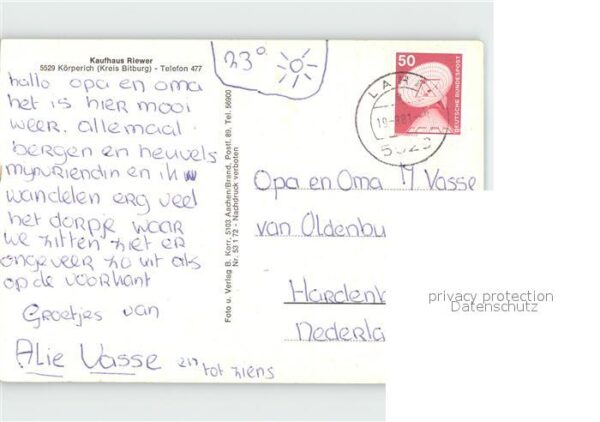 Kaufhaus Riewer
5529 Körperich (Kreis Bitburg) - Telefon 477
23°
hallo opa en oma
het is hier mooi
weer. allemaal
bergen en heuvels
mijn vriendin en ik
wandelen erg veel
het dorpje waar
we zitten ziet er
ongeveer zo uit als
op de voorkant
Groetjes van
Alie Vasse
en tot ziens
Foto u. Verlag B. Korr, 5103 Aachen/Brand, Postf. 89, Tel. 56600
Nr. 53 1 72 - Nachdruck verboten
50
DEUTSCHE BUNDESPOST
Opa en Oma M Vasse
van Oldenbu
Hardenb
Nederla
privacy protection
Datenschutz